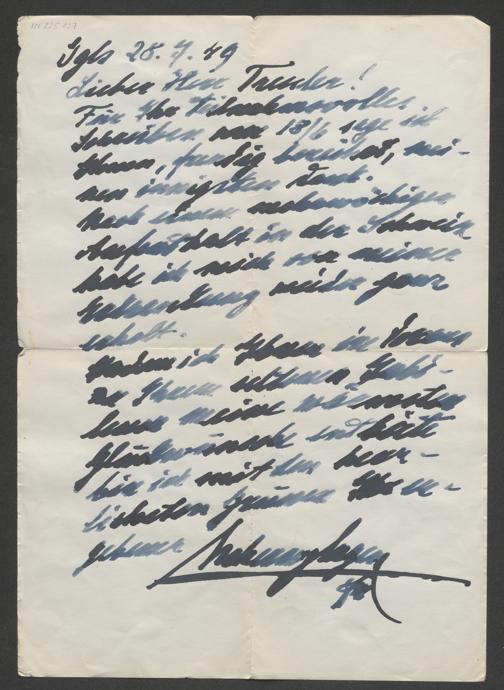 Igls 28.7.49
Lieber Herr Treuder!
Für Ihr teilnahmsvolles
Schreiben vom 18/6 sage ich
Ihnen, freudig bereit, mei-
nen innigsten Dank.
Nach einem mehrwöchigen
Aufenthalt in der Schweiz
habe ich mich von meiner
Erkrankung wieder ganz
erholt.
Indem ich Ihnen im Voraus
zu Ihrem seltenen Jubi-
läum meine wärmsten
Glückwünsche entbiete
bin ich mit den herz-
lichsten Grüssen Ihr er-
gebener